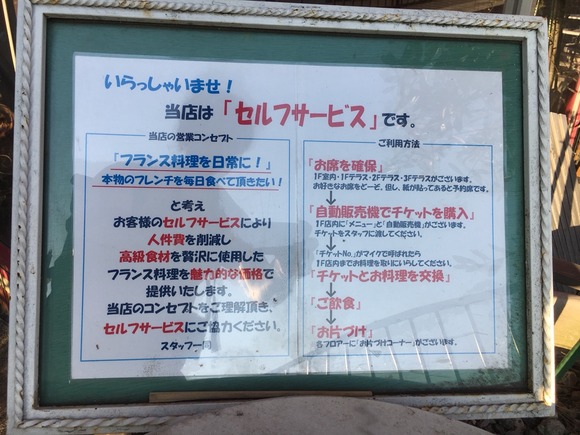 いらっしゃいませ！
当店は「セルフサービス」です。
当店の営業コンセプト
「フランス料理を日常に！」
本物のフレンチを毎日食べて頂きたい！
と考え
お客様のセルフサービスにより
人件費を削減し
高級食材を贅沢に使用した
フランス料理を魅力的な価格で
提供いたします。
当店のコンセプトをご理解頂き、
セルフサービスにご協力ください。
スタッフ一同
ご利用方法
「お席を確保」
1F室内・1Fテラス・2Fテラス・3Fテラスがございます。
お好きなお席をどーぞ、但し、紙が貼ってあると予約席です。
「自動販売機でチケットを購入」
1F店内に「メニュー」と「自動販売機」がございます。
チケットをスタッフに渡してください。
「チケットNo.」がマイクで呼ばれたら
1F店内までお料理を取りにいらしてください。
「チケットとお料理を交換」
「ご飲食」
「お片づけ」
各フロアーに「お片づけコーナー」がございます。